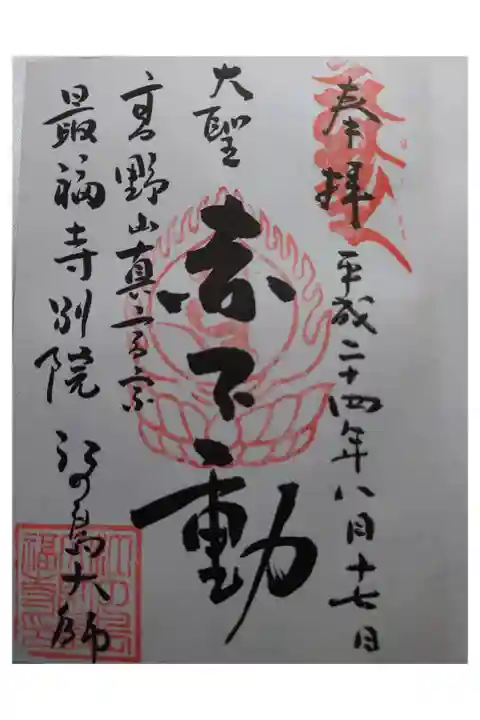 奉拝 平成二十四年八月十七日
大聖
赤不動
高野山真言宗
最福寺別院 江の島大師